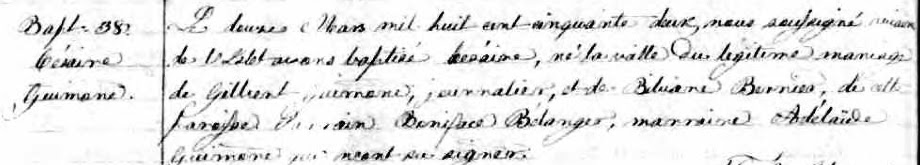 Bapt. 38.
Césaire
Guimone.
Le douze Mars mil huit cent cinquante deux, nous soussigné vicaire
de l'Islet avons baptisé Césaire, né la veille du légitime mariage
de Gilbert Guimone, journalier, et de Bibiane Bernier, de cette
paroisse Parrain Boniface Bélanger, marraine Adélaïde
Guimone qui n'ont su signer.